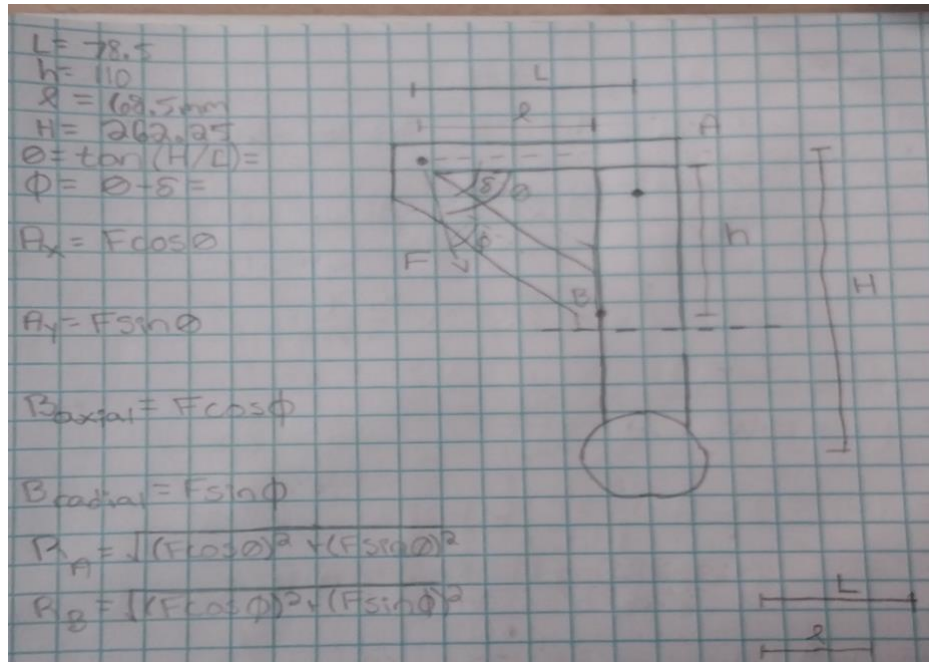 L= 78.5
h= 110
ℓ = 68.5mm
H= 262.25
θ= tan (H/L)=
φ= θ-δ=
Ax= Fcosθ
Ay= Fsinθ
Baxial= Fcosφ
Bradial= Fsinφ
RA= √(Fcosθ)² +(Fsinθ)²
RB= √(Fcosφ)²+(Fsinφ)²
L
ℓ
A
δ
θ
h
φ
F
H
B
L
ℓ